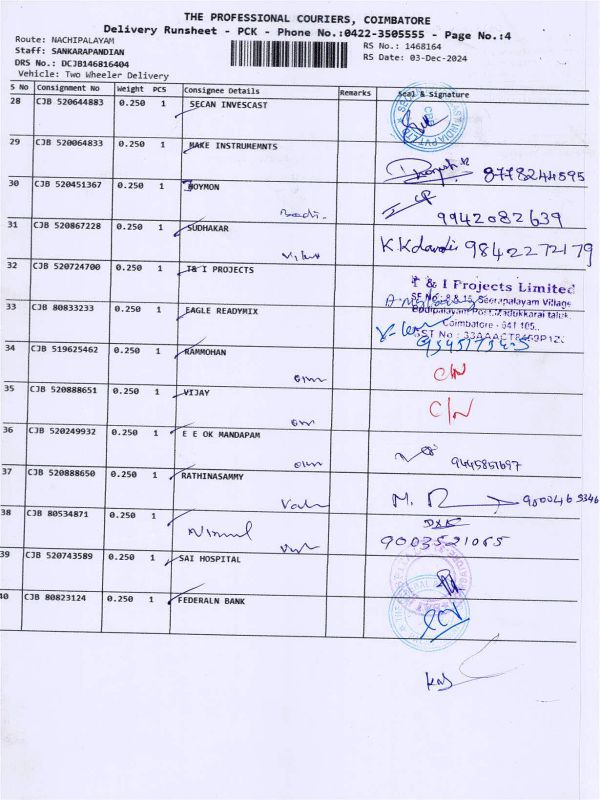 THE PROFESSIONAL COURIERS, COIMBATORE
Delivery Runsheet - PCK - Phone No.:0422-3505555 - Page No.:4
Route: NACHIPALAYAM
RS No.: 1468164
Staff: SANKARAPANDIAN
RS Date: 03-Dec-2024
DRS No.: DCJB146816404
Vehicle: Two Wheeler Delivery
S No Consignment No Weight PCS Consignee Details Remarks Seal & Signature
28 CJB 520644883 0.250 1 SECAN INVESCAST
29 CJB 520064833 0.250 1 MAKE INSTRUMEMNTS
8778244595
30 CJB 520451367 0.250 1 HOYMON
9942082639
31 CJB 520867228 0.250 1 SUDHAKAR
9842272179
32 CJB 520724700 0.250 1 T& I PROJECTS
T & I Projects Limited
SF No : 8 & 15, Seerapalayam Village
Bodipalayam Post, Madukkarai taluk,
Coimbatore - 641 105.
33 CJB 80833233 0.250 1 EAGLE READYMIX
34 CJB 519625462 0.250 1 RAMMOHAN
C/N
35 CJB 520888651 0.250 1 VIJAY
C/N
36 CJB 520249932 0.250 1 E E OK MANDAPAM
9445851697
37 CJB 520888650 0.250 1 RATHINASAMMY
M. R
38 CJB 80534871 0.250 1
9003521065
39 CJB 520743589 0.250 1 SAI HOSPITAL
40 CJB 80823124 0.250 1 FEDERALN BANK